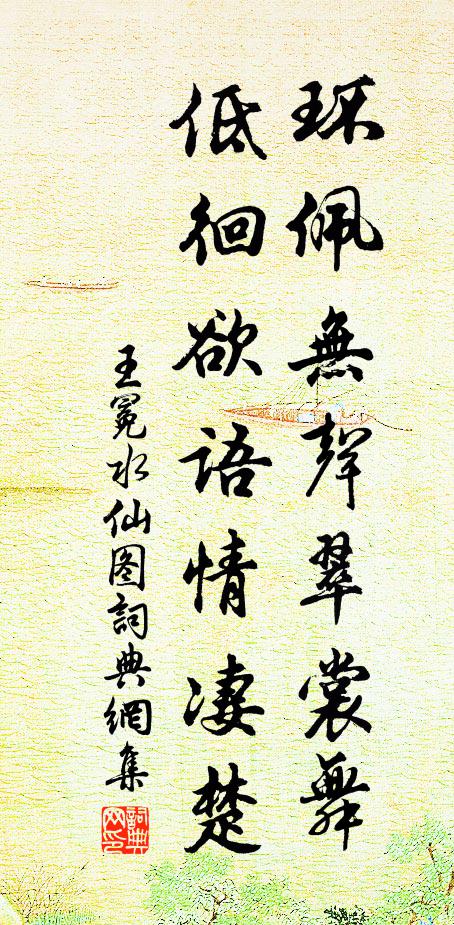 环佩無聲翠裳舞
低徊欲語情凄楚
王冕水仙图詞典網集
詞典网印